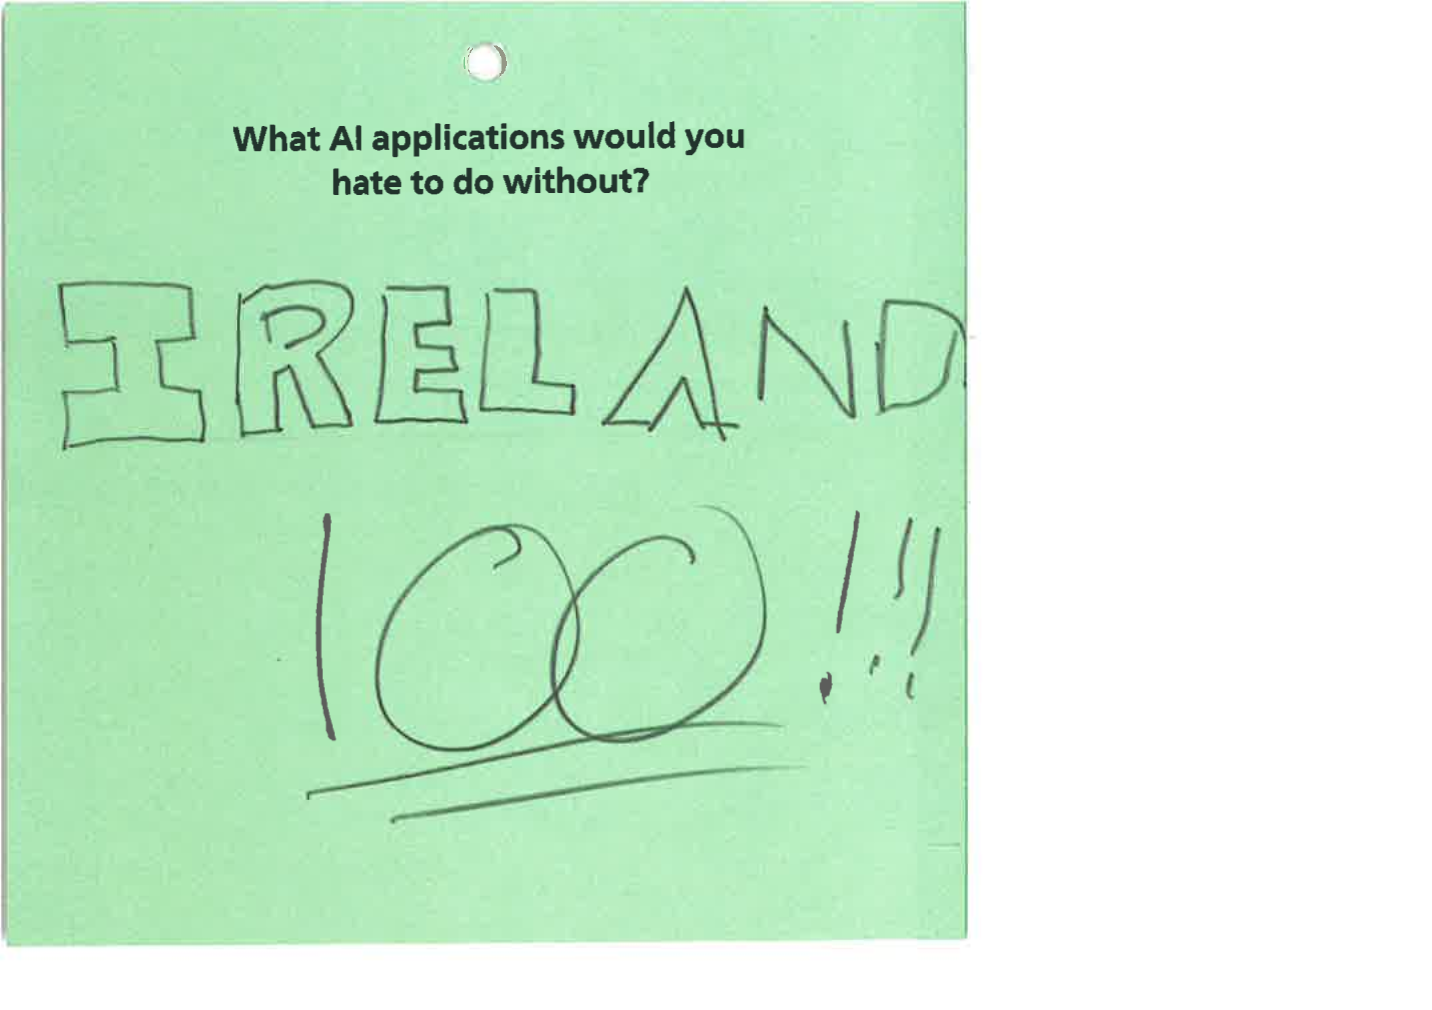 What AI applications would you
hate to do without?
IRELAND
100!!!